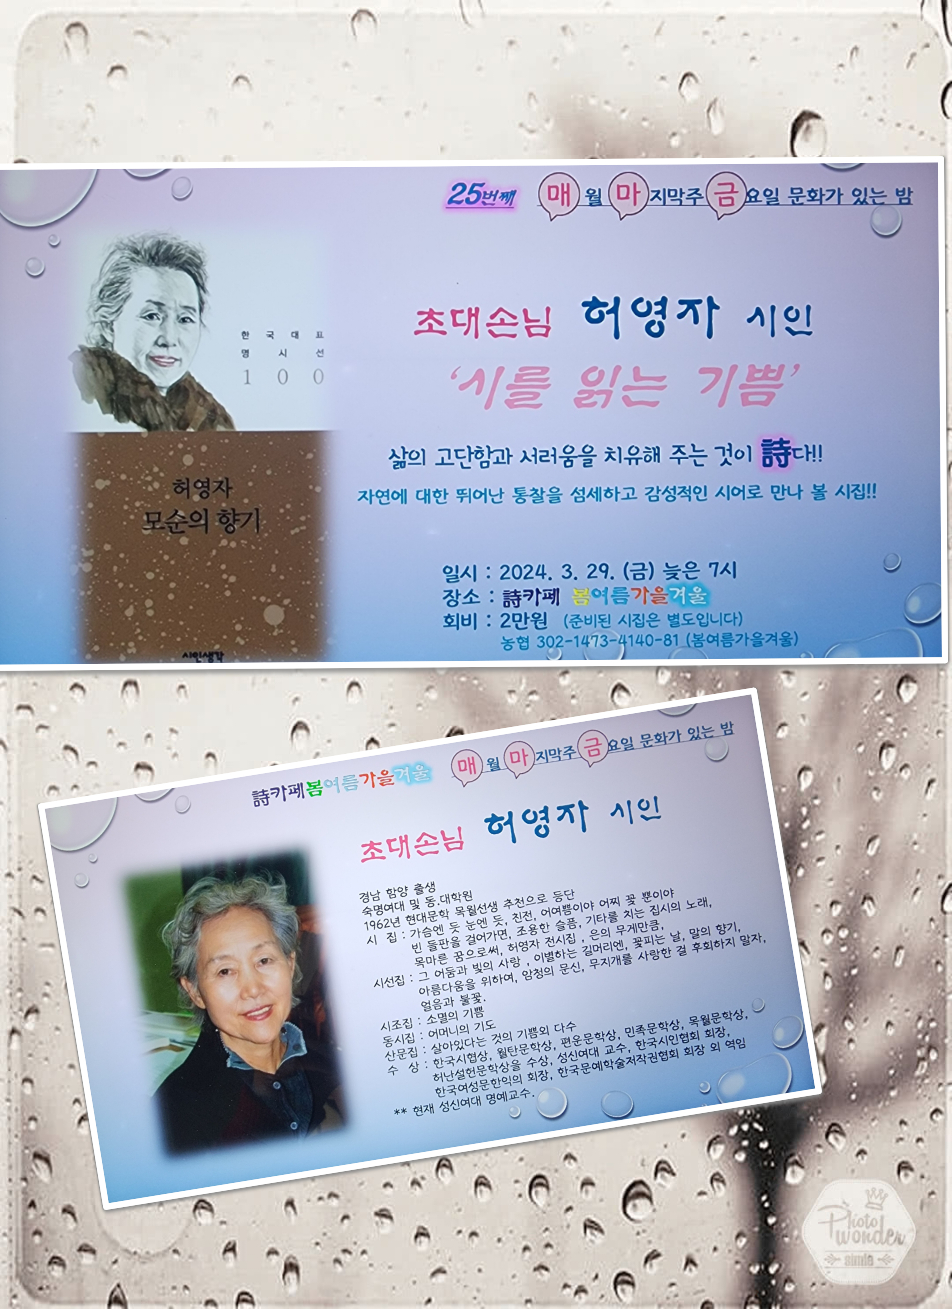 25번째 매월 마지막주 금요일 문화가 있는 밤
한국대표
명시선
100
허영자
모순의 향기
시인생각
초대손님 허영자 시인
‘시를 읽는 기쁨’
삶의 고단함과 서러움을 치유해 주는 것이 詩다!!
자연에 대한 뛰어난 통찰을 섬세하고 감성적인 시어로 만나 볼 시집!!
일시 : 2024. 3. 29. (금) 늦은 7시
장소 : 詩카페 봄여름가을겨울
회비 : 2만원 (준비된 시집은 별도입니다)
농협 302-1473-4140-81 (봄여름가을겨울)
詩카페봄여름가을겨울 매월 마지막주 금요일 문화가 있는 밤
초대손님 허영자 시인
경남 함양 출생
숙명여대 및 동.대학원
1962년 현대문학 목월선생 추천으로 등단
시 집 : 가슴엔 듯 눈엔 듯, 친전, 어여쁨이야 어찌 꽃 뿐이야
빈 들판을 걸어가면, 조용한 슬픔, 기타를 치는 집시의 노래,
목마른 꿈으로써, 허영자 전시집 , 은의 무게만큼,
시선집 : 그 어둠과 빛의 사랑 , 이별하는 길머리엔, 꽃피는 날, 말의 향기,
아름다움을 위하여, 암청의 문신, 무지개를 사랑한 걸 후회하지 말자,
얼음과 불꽃.
시조집 : 소멸의 기쁨
동시집 : 어머니의 기도
산문집 : 살아있다는 것의 기쁨외 다수
수 상 : 한국시협상, 월탄문학상, 편운문학상, 민족문학상, 목월문학상,
허난설헌문학상을 수상, 성신여대 교수, 한국시인협회 회장,
한국여성문한익의 회장, 한국문예학술저작권협회 회장 외 역임
** 현재 성신여대 명예교수.
Photo
wonder
simle